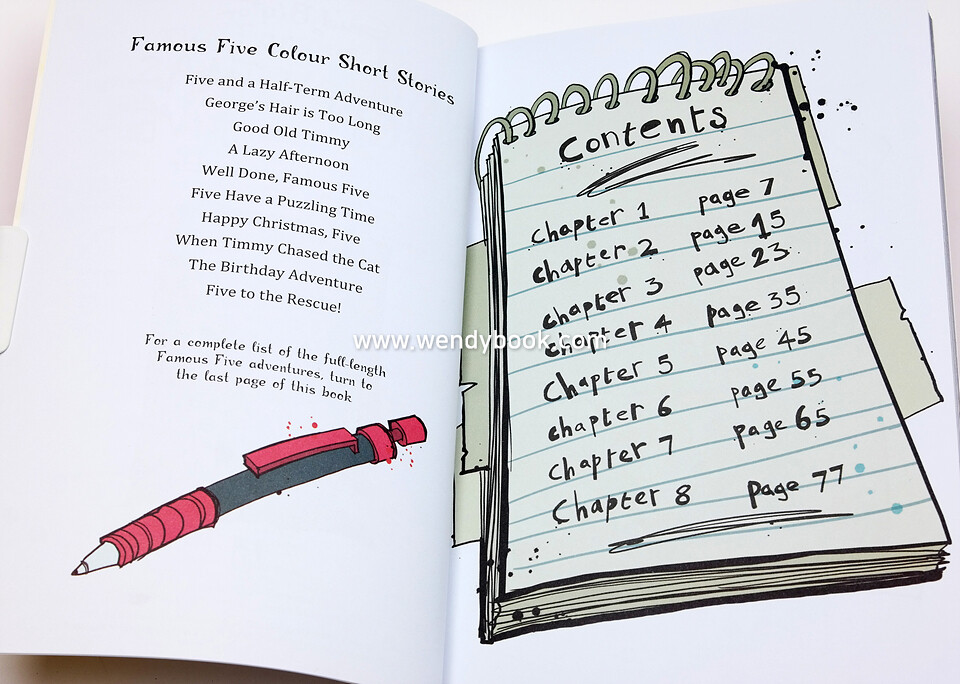 Famous Five Colour Short Stories
Five and a Half-Term Adventure
George's Hair is Too Long
Good Old Timmy
A Lazy Afternoon
Well Done, Famous Five
Five Have a Puzzling Time
Happy Christmas, Five
When Timmy Chased the Cat
The Birthday Adventure
Five to the Rescue!
For a complete list of the full-length
Famous Five adventures, turn to
the last page of this book
Contents
chapter 1 page 7
chapter 2 page 15
chapter 3 page 23
chapter 4 page 35
Chapter 5 page 45
chapter 6 page 55
chapter 7 page 65
Chapter 8 page 77
www.wendybook.com